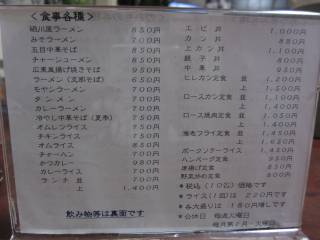 <食事各種>
細川風ラーメン 850円
みそラーメン 700円
五目中華そば 850円
チャーシューメン 850円
広東風揚げ焼きそば 950円
ラーメン(支那そば) 600円
モヤシラーメン 700円
タンメン 700円
カレーラーメン 700円
冷やし中華そば(夏季) 750円
オムレツライス 750円
チキンライス 750円
オムライス 850円
チャーハン 700円
かつカレー 980円
カレーライス 700円
ランチ 並 700円
上 1,400円
飲み物等は裏面です
エビ丼 1,000円
カツ丼 880円
上カツ丼 1,100円
親子丼 800円
中華丼 950円
ヒレカツ定食 並 1,200円
上 1,500円
ロースカツ定食 並 1,100円
上 1,400円
ロース焼肉定食 並
上
海老フライ定食 並 1,450円
上
ポークソテーライス 1,450円
ハンバーグ定食 950円
唐揚げ定食 850円
野菜炒め定食
*税込(10%)価格です
*ライス(皿)は 220円です
*各大盛りは 180円増しです
◎公休日 毎週火曜日
毎月第2月・火曜日